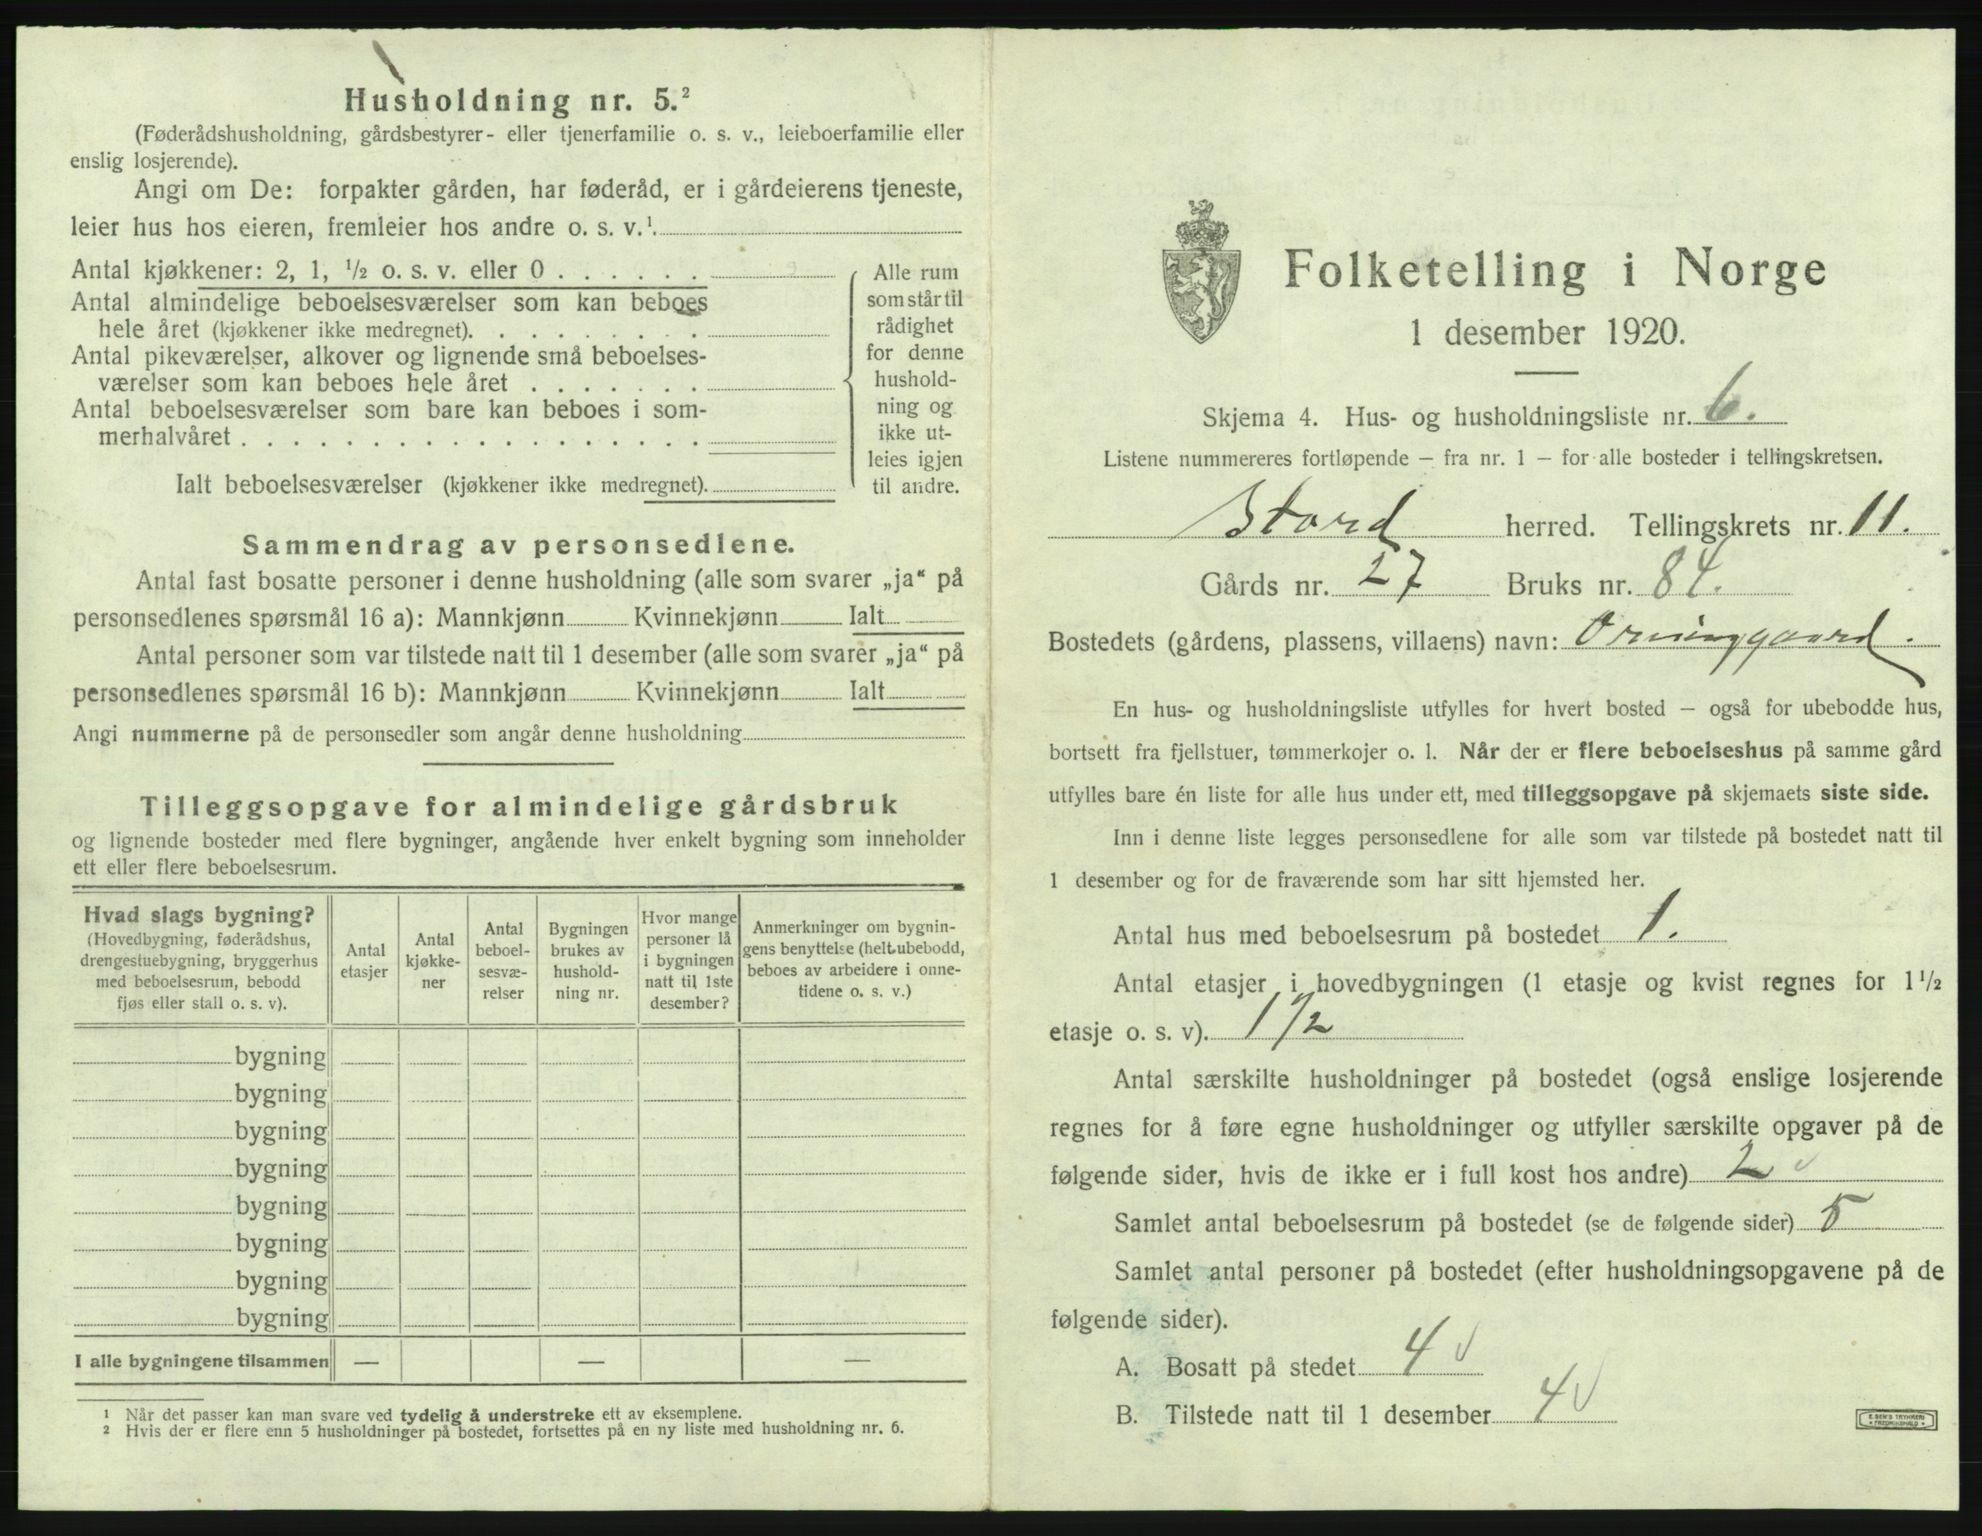 Husholdning nr. 5.²
(Føderådshusholdning, gårdsbestyrer- eller tjenerfamilie o. s. v., leieboerfamilie eller
enslig losjerende).
Angi om De: forpakter gården, har føderåd, er i gårdeierens tjeneste,
leier hus hos eieren, fremleier hos andre o. s. v.¹
Antal kjøkkener: 2, 1, ½ o. s. v. eller 0 . . . . . .
Antal almindelige beboelsesværelser som kan beboes
hele året (kjøkkener ikke medregnet). . . . . . . . .
Antal pikeværelser, alkover og lignende små beboelses-
værelser som kan beboes hele året . . . . . . .
Antal beboelsesværelser som bare kan beboes i som-
merhalvåret . . . . . . . . . . . . . . . . . .
Ialt beboelsesværelser (kjøkkener ikke medregnet).
Alle rum
som står til
rådighet
for denne
hushold-
ning og
ikke ut-
leies igjen
til andre.
Sammendrag av personsedlene.
Antal fast bosatte personer i denne husholdning (alle som svarer „ja“ på
personsedlenes spørsmål 16 a): Mannkjønn Kvinnekjønn Ialt
Antal personer som var tilstede natt til 1 desember (alle som svarer „ja“ på
personsedlenes spørsmål 16 b): Mannkjønn Kvinnekjønn Ialt
Angi nummerne på de personsedler som angår denne husholdning
Tilleggsopgave for almindelige gårdsbruk
og lignende bosteder med flere bygninger, angående hver enkelt bygning som inneholder
ett eller flere beboelsesrum.
Hvad slags bygning?
(Hovedbygning, føderådshus,
drengestuebygning, bryggerhus
med beboelsesrum, bebodd
fjøs eller stall o. s. v).
Antal
etasjer
Antal
kjøkke-
ner
Antal
beboel-
sesvæ-
relser
Bygningen
brukes av
hushold-
ning nr.
Hvor mange
personer lå
i bygningen
natt til 1ste
desember?
Anmerkninger om bygnin-
gens benyttelse (helt ubebodd,
beboes av arbeidere i onne-
tidene o. s. v.)
bygning
bygning
bygning
bygning
bygning
bygning
bygning
bygning
I alle bygningene tilsammen — — —
¹ Når det passer kan man svare ved tydelig å understreke ett av eksemplene.
² Hvis der er flere enn 5 husholdninger på bostedet, fortsettes på en ny liste med husholdning nr. 6.
Folketelling i Norge
1 desember 1920.
Skjema 4. Hus- og husholdningsliste nr. 6.
Listene nummereres fortløpende – fra nr. 1 – for alle bosteder i tellingskretsen.
Stord herred. Tellingskrets nr. 11.
Gårds nr. 27 Bruks nr. 84.
Bostedets (gårdens, plassens, villaens) navn: Orninggaard.
En hus- og husholdningsliste utfylles for hvert bosted – også for ubebodde hus,
bortsett fra fjellstuer, tømmerkojer o. l. Når der er flere beboelseshus på samme gård
utfylles bare én liste for alle hus under ett, med tilleggsopgave på skjemaets siste side.
Inn i denne liste legges personsedlene for alle som var tilstede på bostedet natt til
1 desember og for de fraværende som har sitt hjemsted her.
Antal hus med beboelsesrum på bostedet 1.
Antal etasjer i hovedbygningen (1 etasje og kvist regnes for 1½
etasje o. s. v). 1½
Antal særskilte husholdninger på bostedet (også enslige losjerende
regnes for å føre egne husholdninger og utfyller særskilte opgaver på de
følgende sider, hvis de ikke er i full kost hos andre) 2 v
Samlet antal beboelsesrum på bostedet (se de følgende sider) 5
Samlet antal personer på bostedet (efter husholdningsopgavene på de
følgende sider).
A. Bosatt på stedet 4 v
B. Tilstede natt til 1 desember 4 v